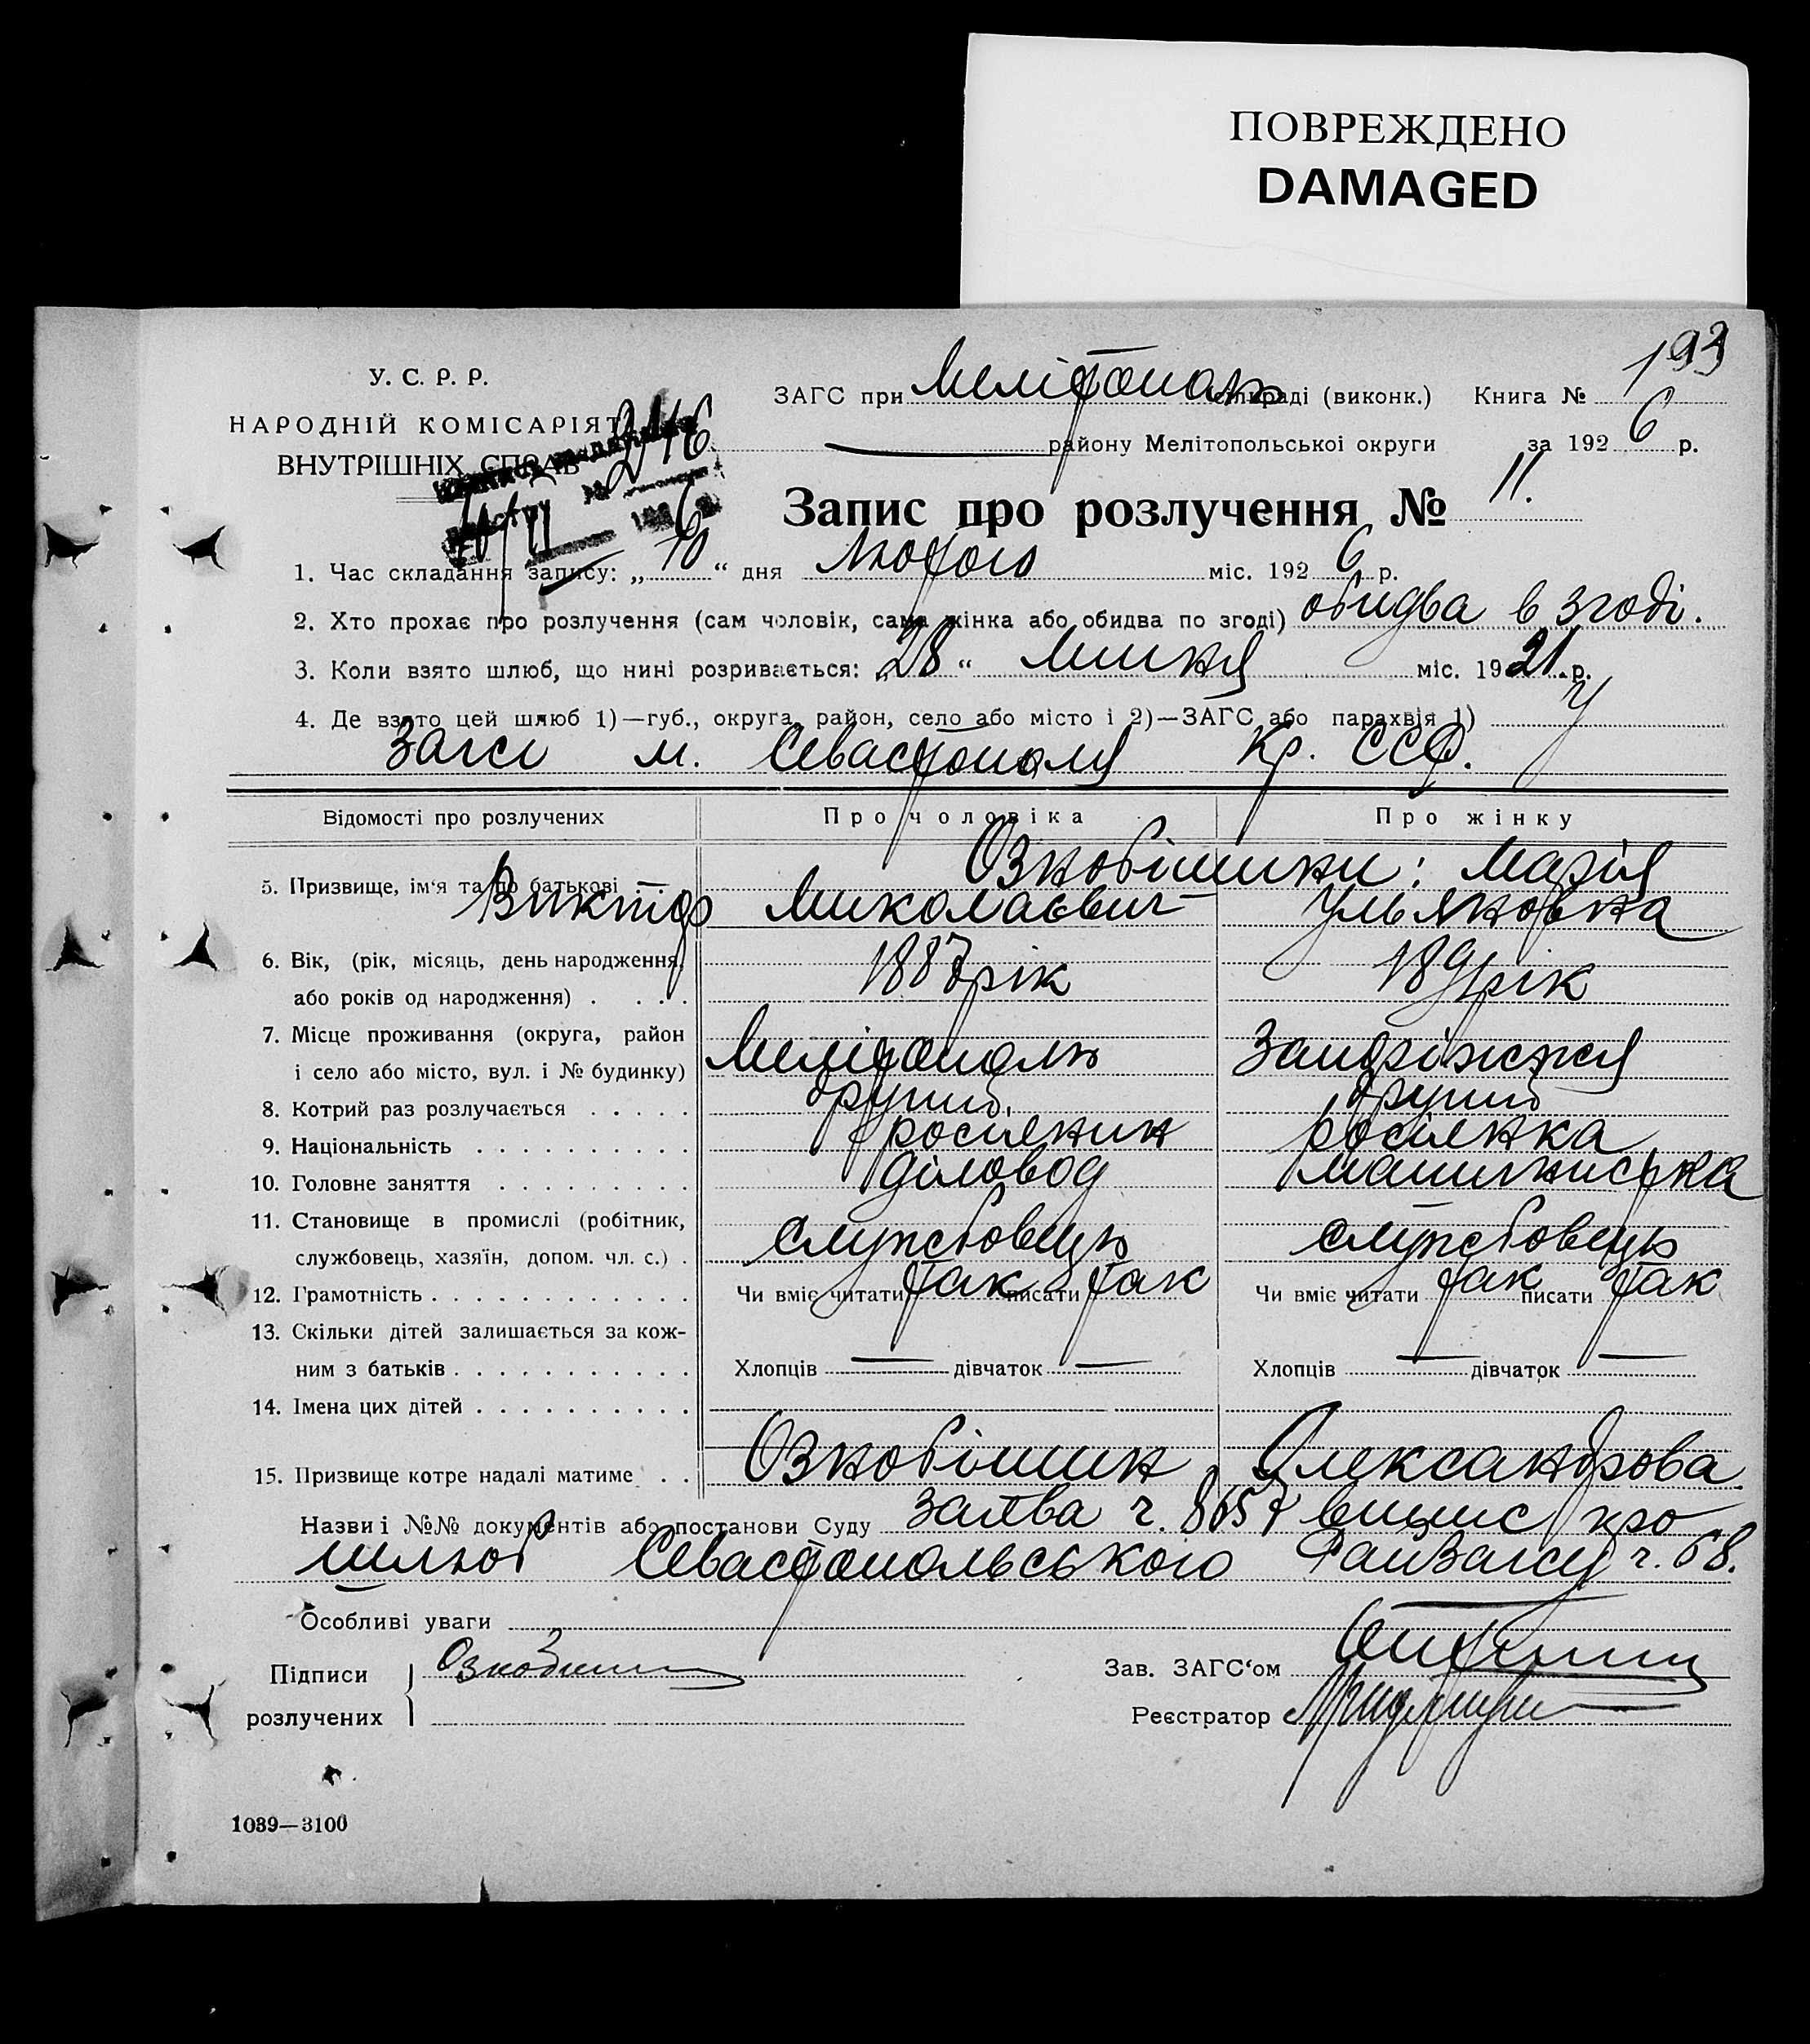 ПОВРЕЖДЕНО
DAMAGED
193
У. С. Р. Р.
НАРОДНІЙ КОМІСАРІЯТ
ВНУТРІШНІХ СПРАВ
ЗАГС при Мелітопол. міськраді (виконк.) Книга №
району Мелітопольської округи за 1926 р.
Запис про розлучення № 11.
1. Час складання запису: „10“ дня Лютого міс. 1926 р.
2. Хто прохає про розлучення (сам чоловік, сама жінка або обидва по згоді) обидва в згоді.
3. Коли взято шлюб, що нині розривається: „28“ Липня міс. 1921 р.
4. Де взято цей шлюб 1)—губ., округа, район, село або місто і 2)—ЗАГС або парахвія 1) у
Загсі м. Севастополя Кр. ССР.
Відомості про розлучених Про чоловіка Про жінку
5. Призвище, ім‘я та по батькові Ознобішини: Марія
Виктор Миколаєвич Ульяновна
6. Вік, (рік, місяць, день народження, або років од народження) 1887 рік 189 рік
7. Місце проживання (округа, район
і село або місто, вул. і № будинку) Мелітополь Запоріжжя
8. Котрий раз розлучається другий другий
9. Національність росіянин росіянка
10. Головне заняття діловод машиністка
11. Становище в промислі (робітник,
службовець, хазяїн, допом. чл. с.) службовець службовець
12. Грамотність Чи вміє читати так писати так Чи вміє читати так писати так
13. Скільки дітей залишається за кож-
ним з батьків Хлопців — дівчаток — Хлопців — дівчаток —
14. Імена цих дітей
15. Призвище котре надалі матиме Ознобішин Олександрова
Назви і №№ документів або постанови Суду заява ч. 8657 випис про
шлюб Севастопольського РайЗагсу ч. 68.
Особливі уваги
Підписи
розлучених
Зав. ЗАГС‘ом
Реєстратор
1039—3100